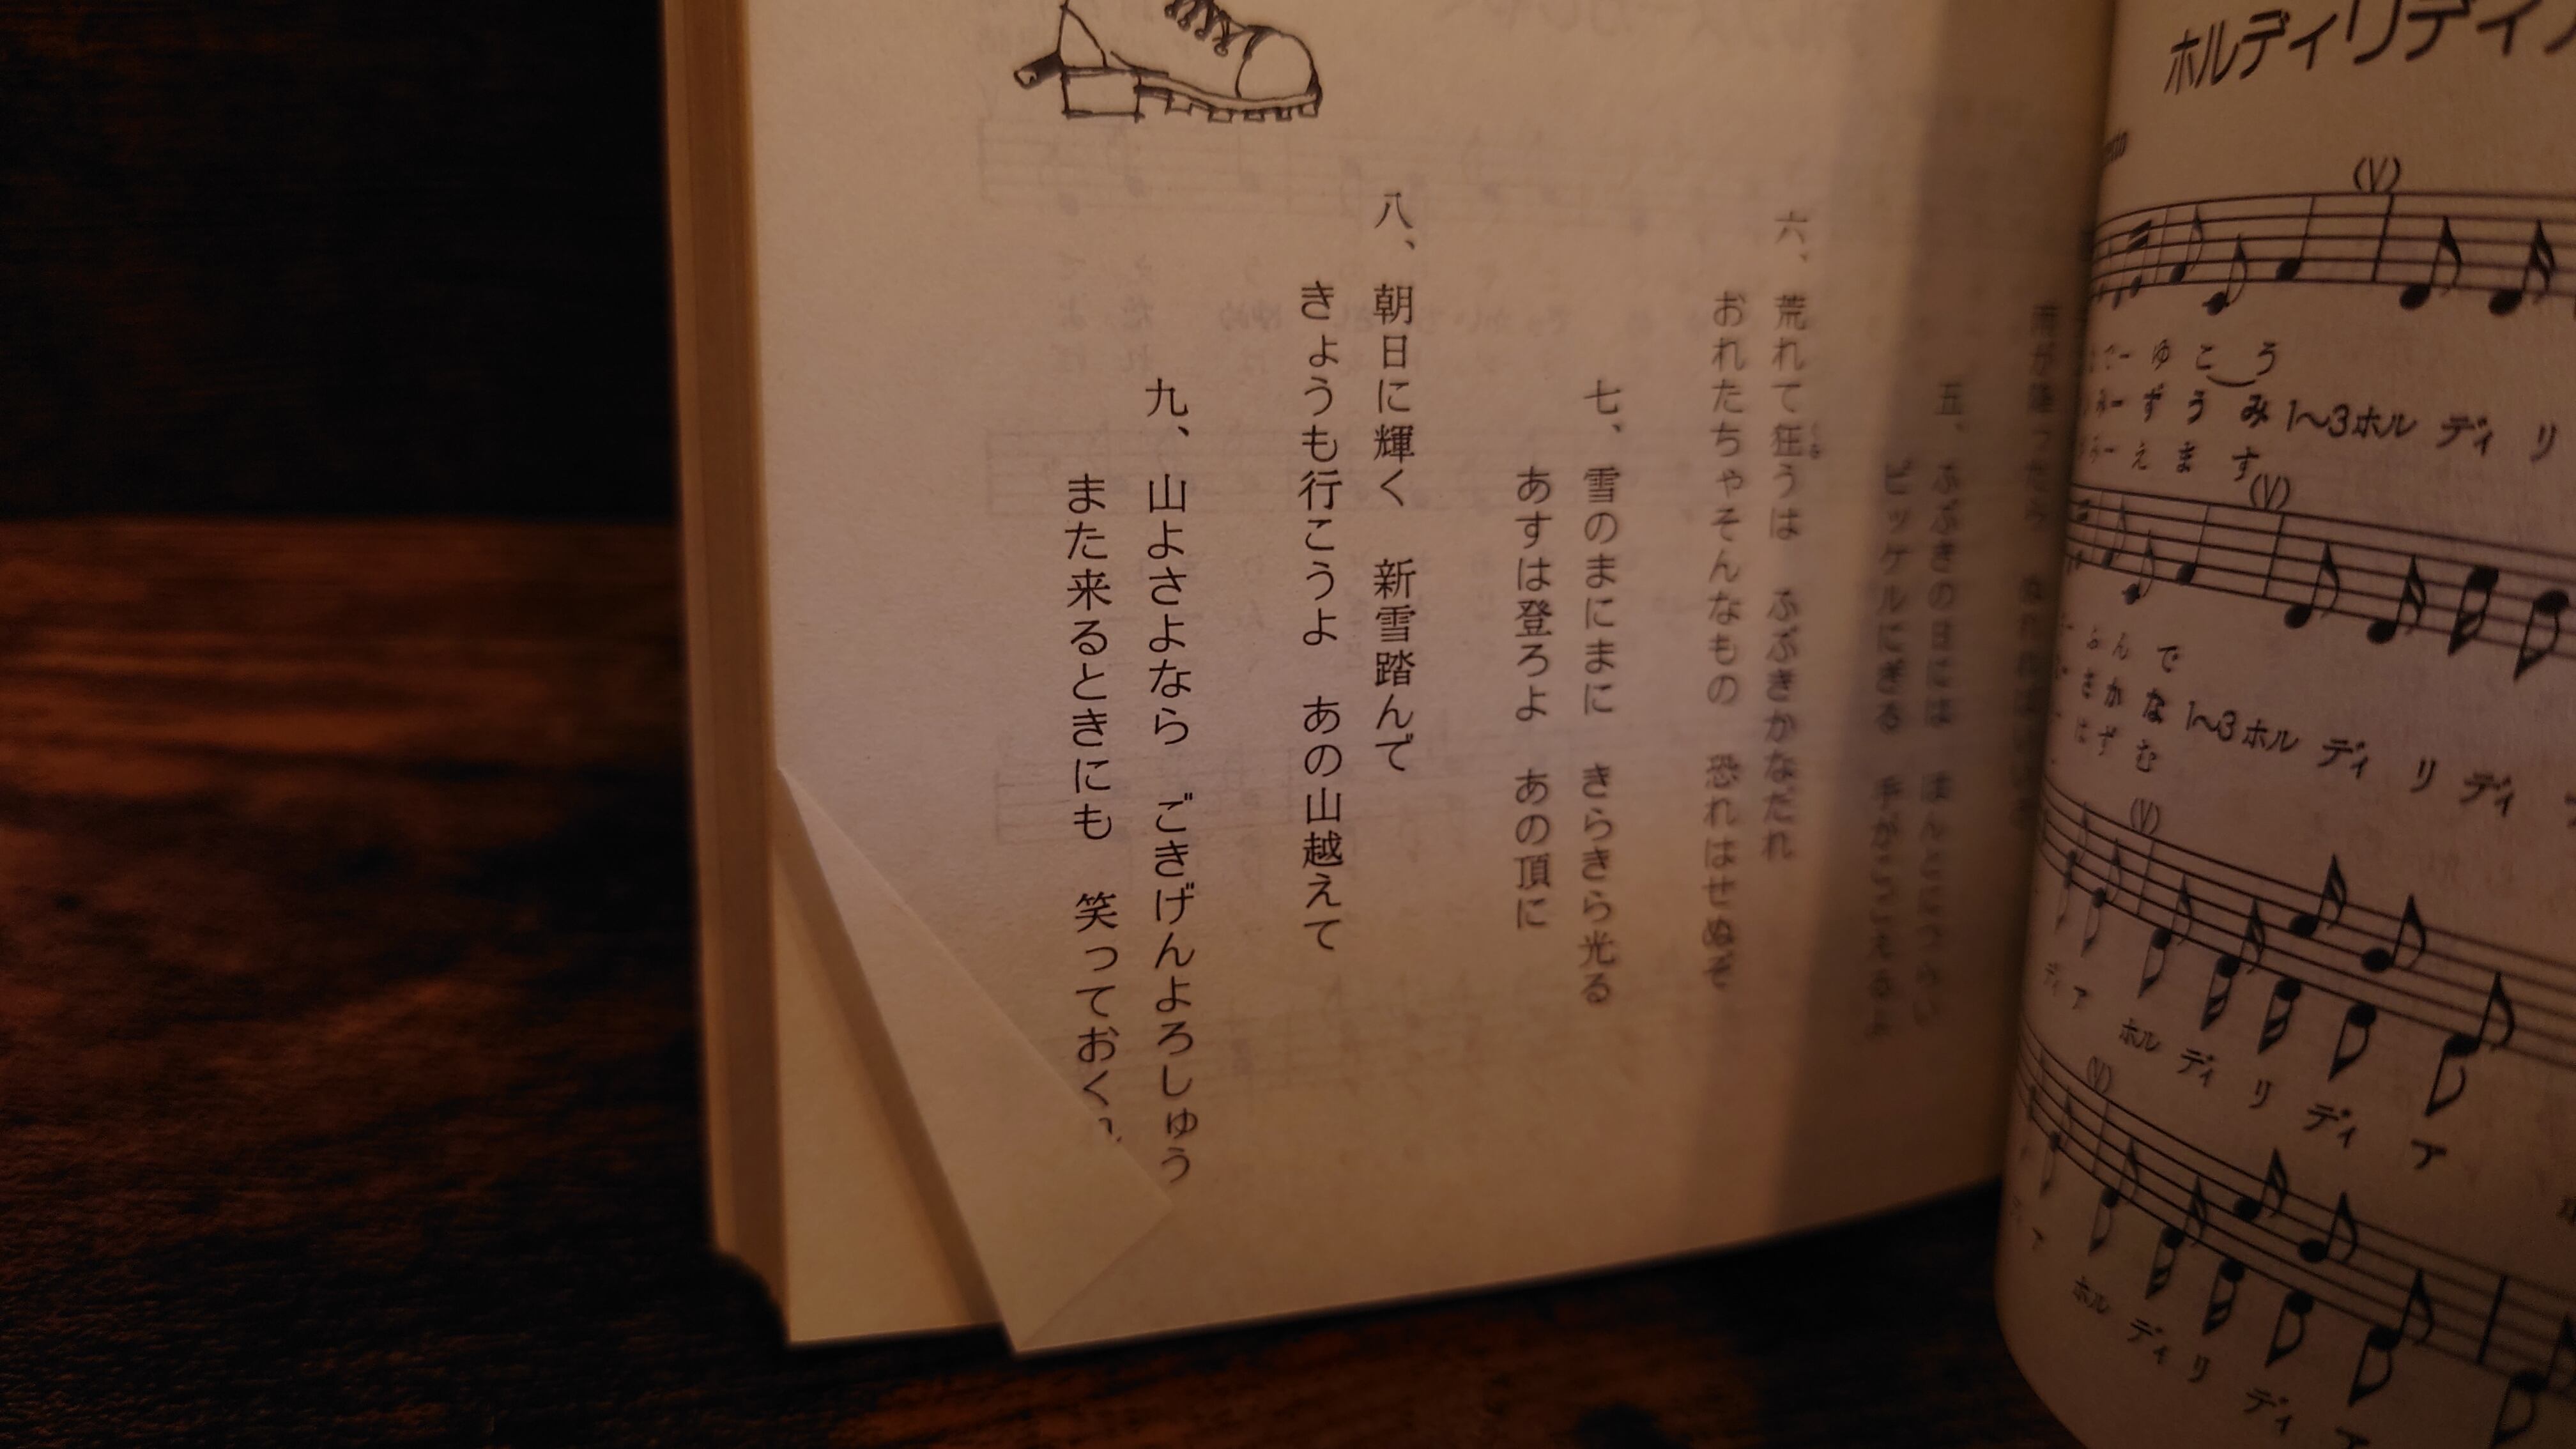 五、ふぶきの日には ほんとにつらい
ピッケルにぎる 手がこごえるよ
六、荒れて狂うは ふぶきかなだれ
おれたちゃそんなもの 恐れはせぬぞ
七、雪のまにまに きらきら光る
あすは登ろよ あの頂に
八、朝日に輝く 新雪踏んで
きょうも行こうよ あの山越えて
九、山よさよなら ごきげんよろしゅう
また来るときにも 笑っておく
ホルディリディ
(V)
ゆ こ う
ず う み 1〜3ホル ディ リ
え ま す
(V)
ん で
さ か な 1〜3ホル ディ リ ディ
は ず む
(V)
ディ ア ホル ディ リ ディ ア
(V)
ア ホル ディ リ ディ ア